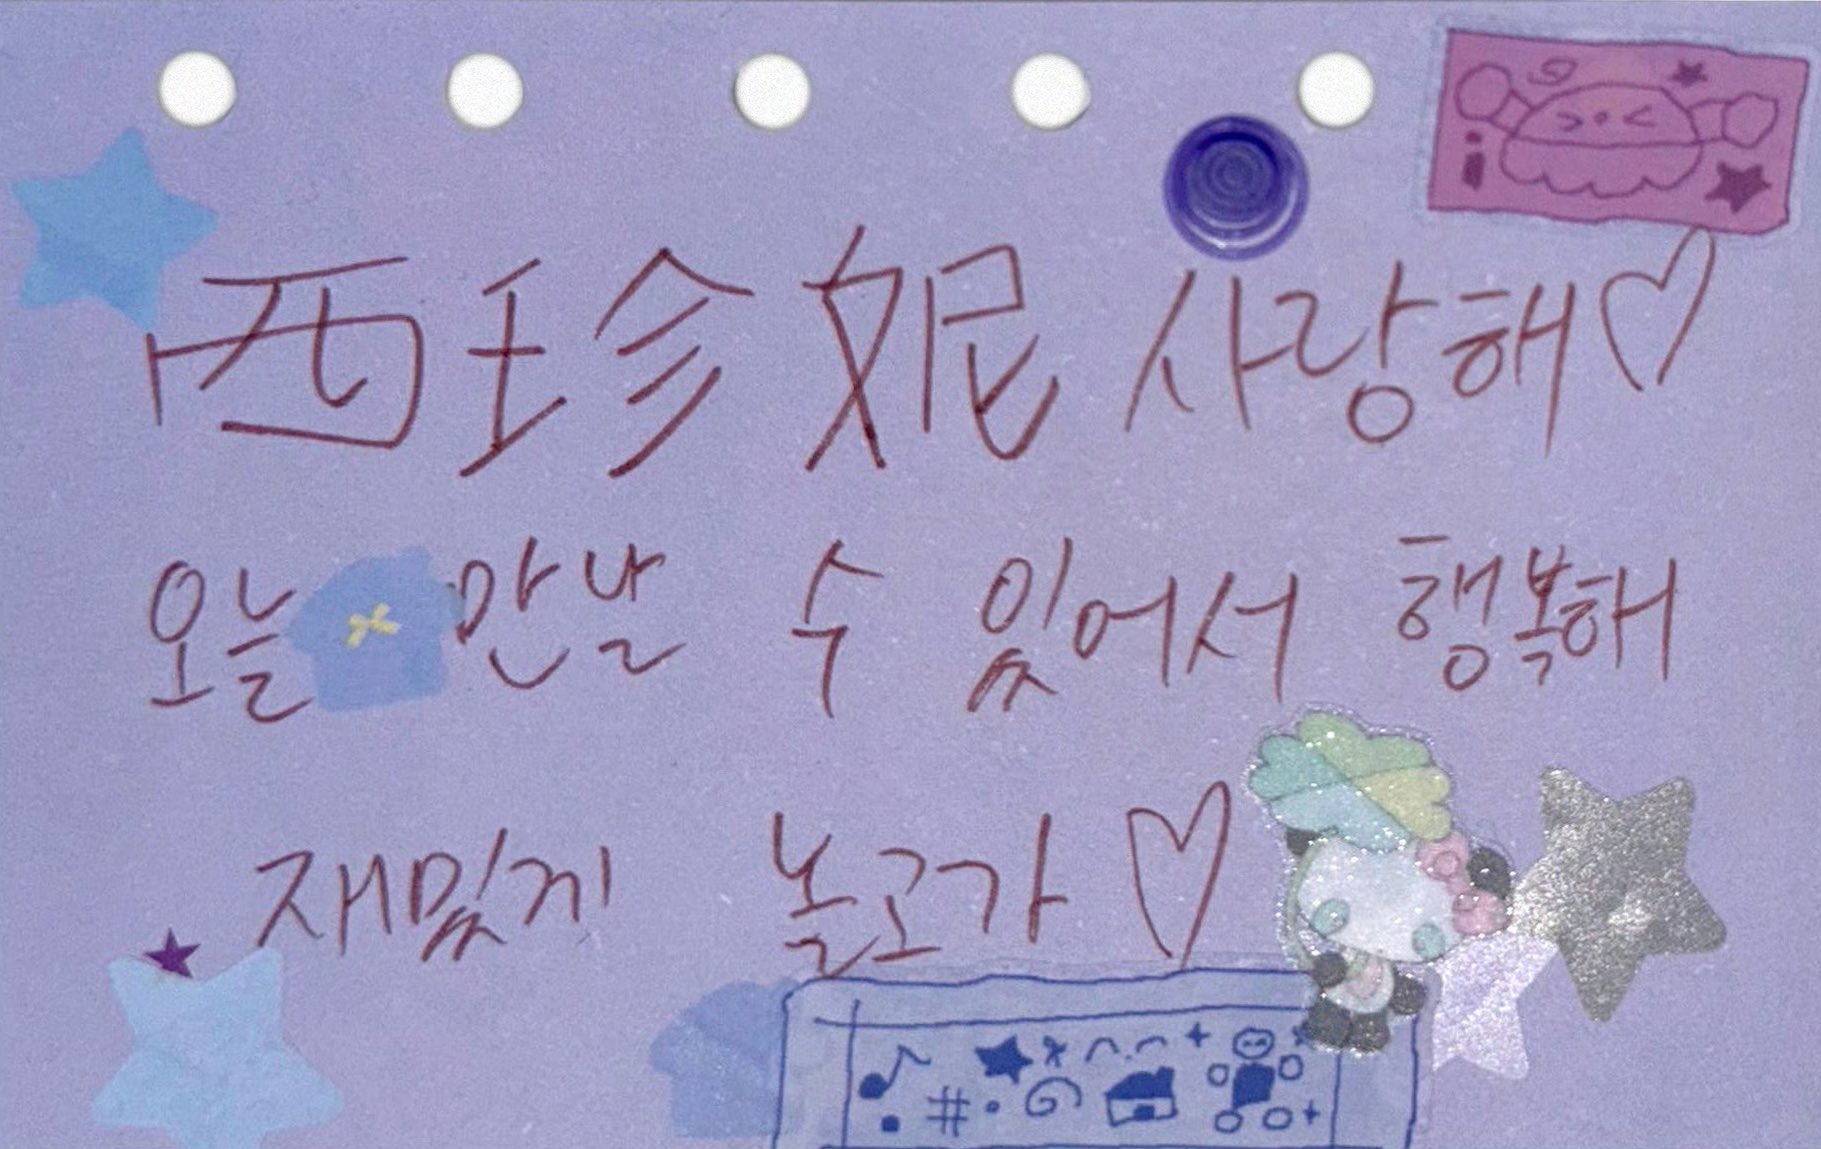 西珍妮 사랑해♡
오늘 만날 수 있어서 행복해
재밌게 놀고가♡